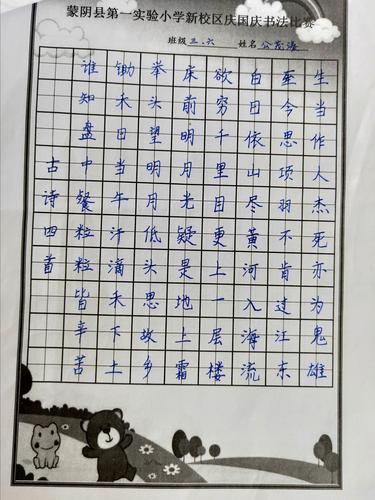 蒙阴县第一实验小学新校区庆国庆书法比赛
班级 三.六 姓名 公茂海
生当作人杰死亦为鬼雄
至今思项羽不肯过江东
白日依山尽黄河入海流
欲穷千里目更上一层楼
床前明月光疑是地上霜
举头望明月低头思故乡
锄禾日当午汗滴禾下土
谁知盘中餐粒粒皆辛苦
古诗四首